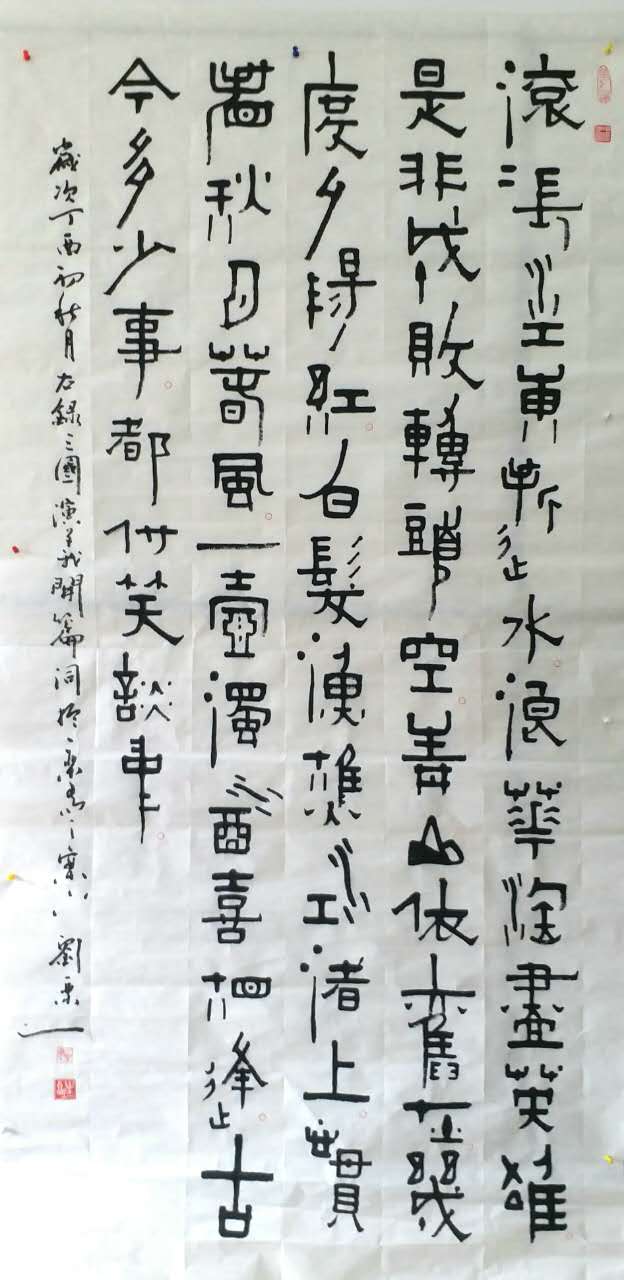 滾〻長江東逝水浪華淘盡英雄
是非成敗轉頭空青山依舊在幾
度夕陽紅白髮漁樵江渚上慣
看秋月春風一壺濁酒喜相逢古
今多少事都付笑談中
歲次丁酉初秋月右錄三國演義開篇詞於 劉